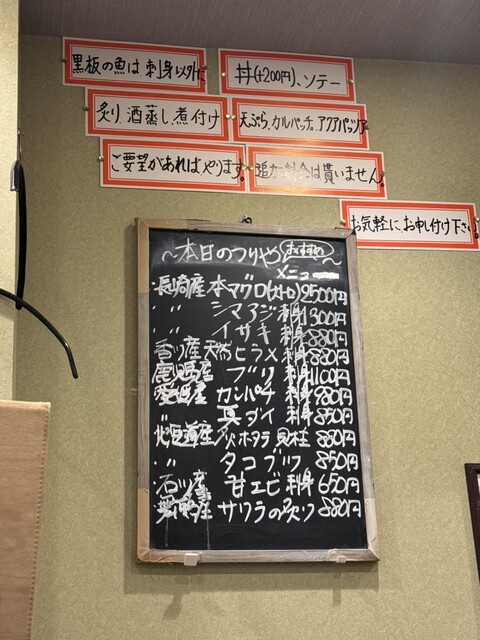 黒板の魚は、刺身以外に
丼(+200円)、ソテー
炙り、酒蒸し、煮付け
天ぷら、カルパッチョ、アクアパッツァ
ご要望があればやります。
追加料金は貰いません。
お気軽にお申し付け下さい。
〜本日のつりや おすすめ〜
メニュー
長崎産 本マグロ(大トロ) 2500円
〃 シマアジ 刺身 1300円
〃 イサキ 刺身 880円
香川産 天然ヒラメ 刺身 880円
鹿児島産 ブリ 刺身 1100円
愛媛産 カンパチ 刺身 980円
〃 真ダイ 刺身 850円
北海道産 ホタテ貝柱 880円
〃 タコブツ 850円
石川産 甘エビ 刺身 650円
サワラの炙り 880円